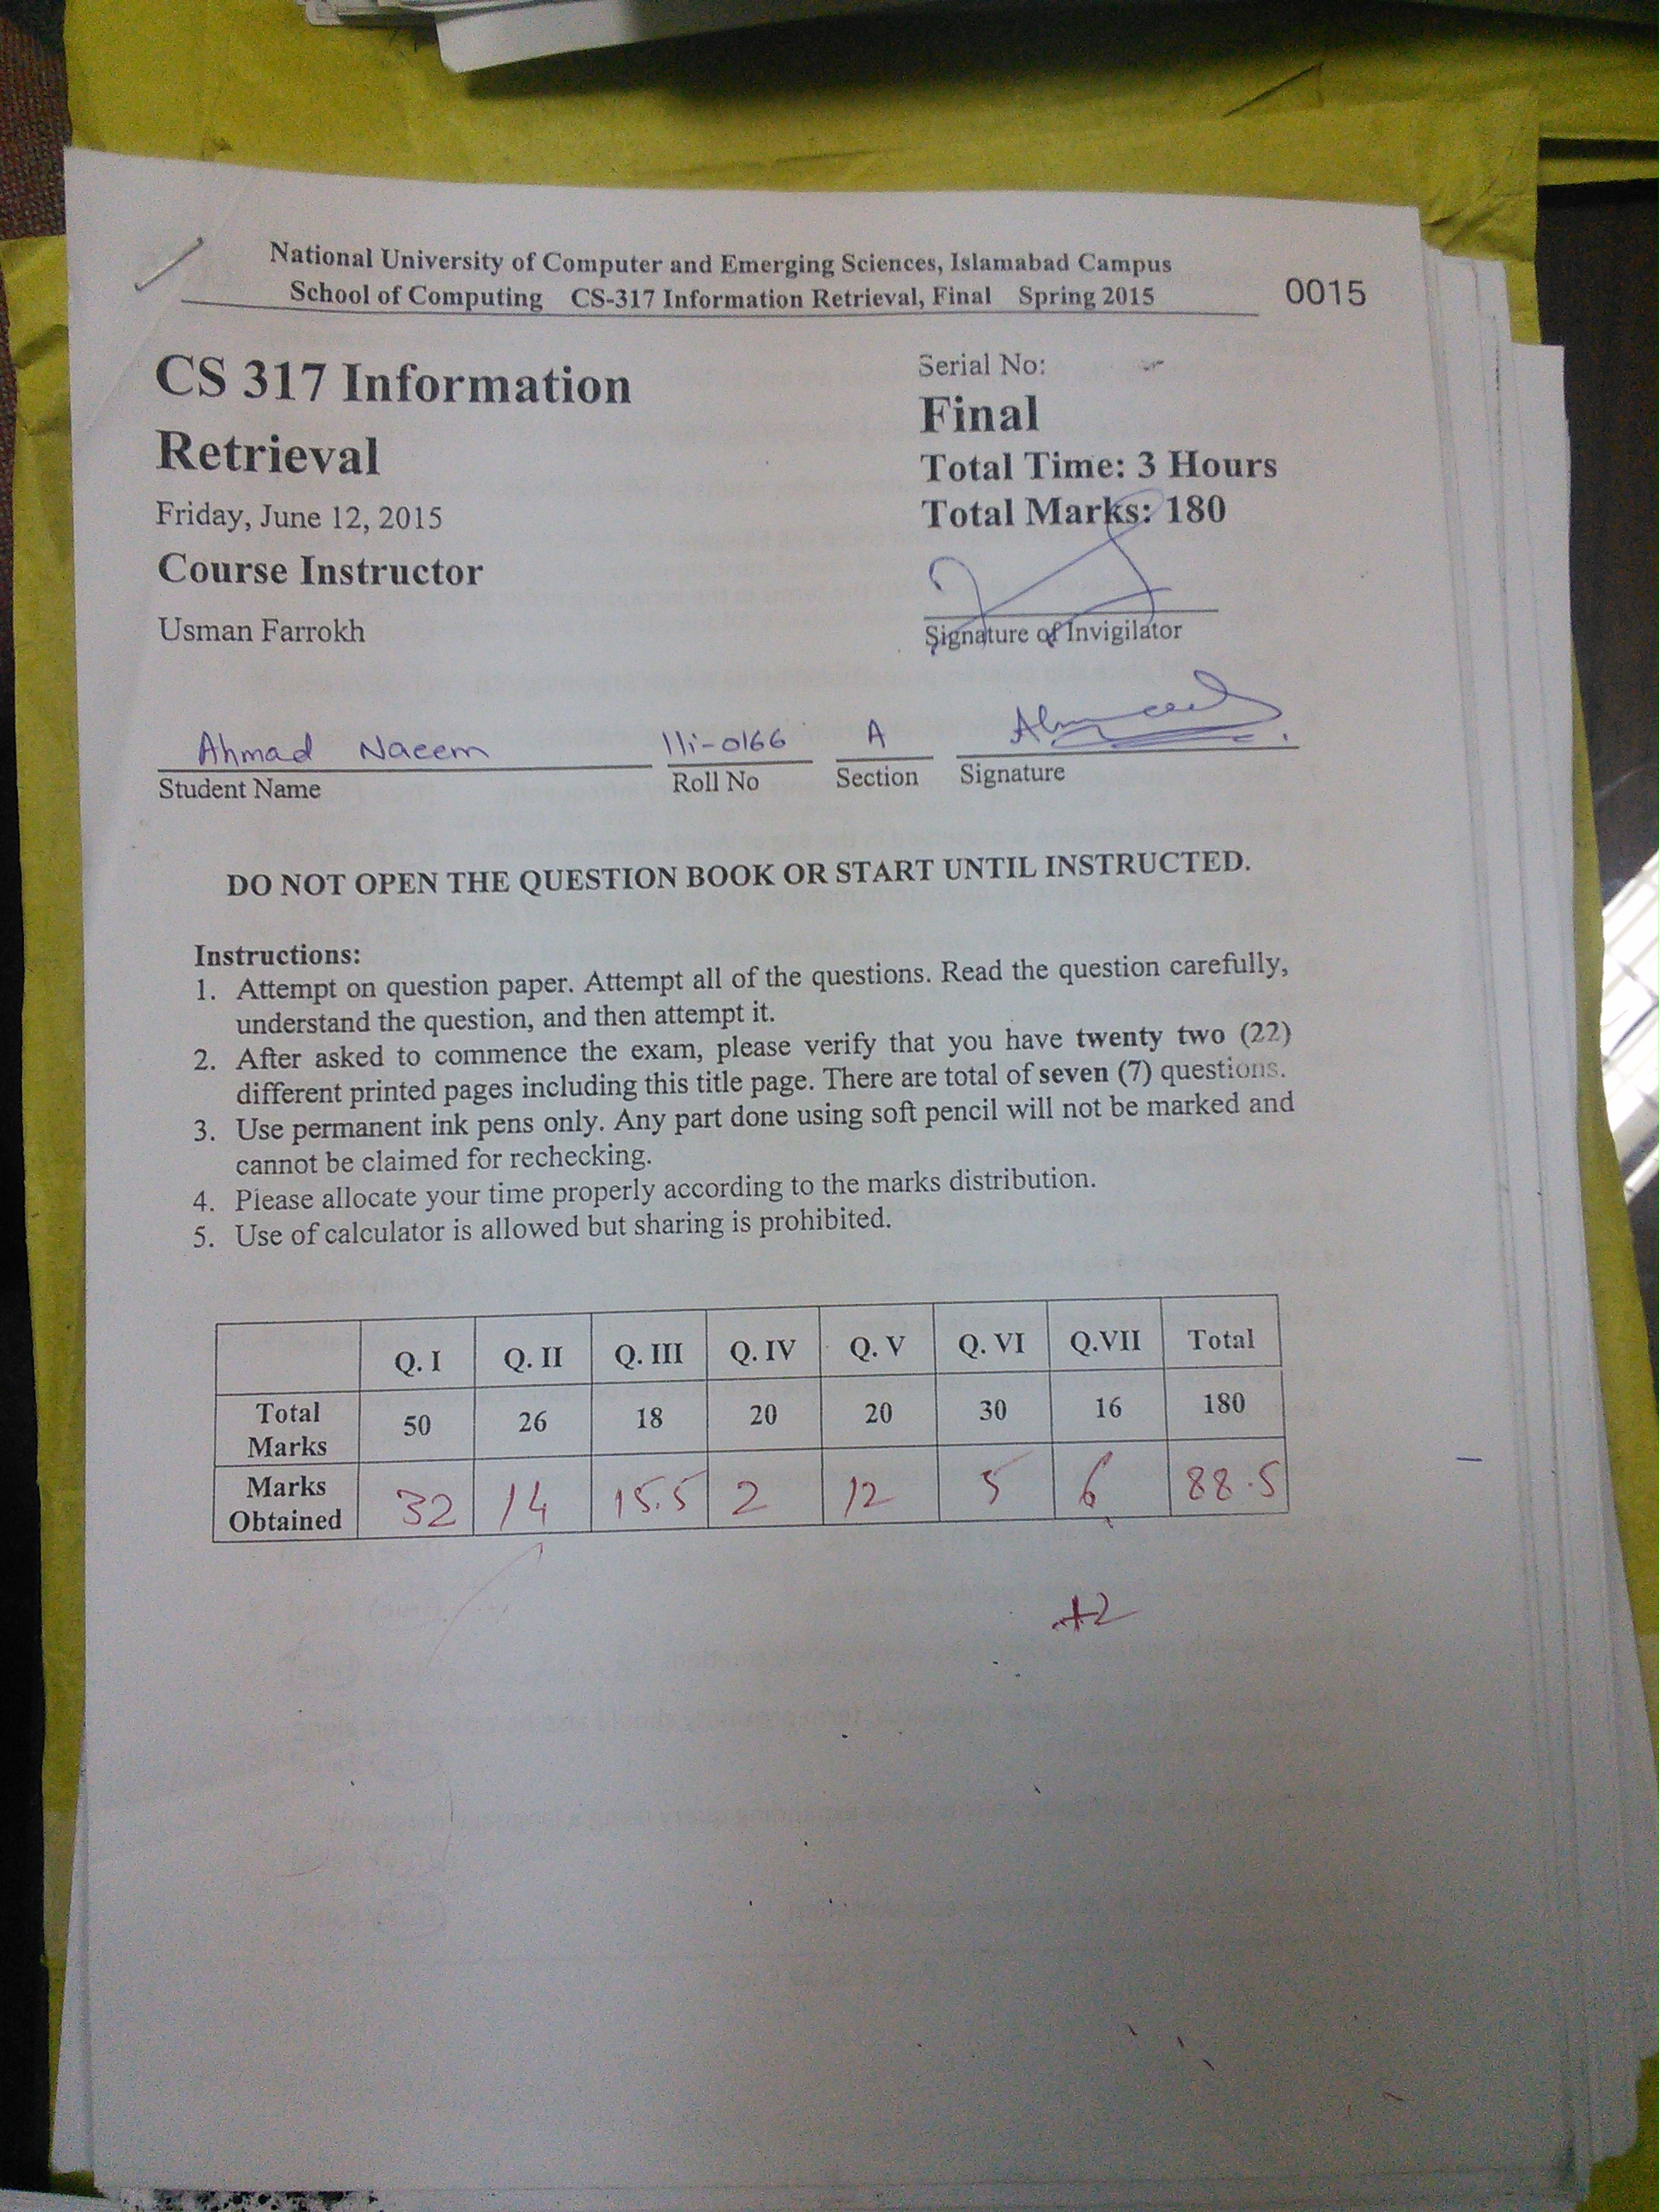 National University of Computer and Emerging Sciences, Islamabad Campus
School of Computing CS-317 Information Retrieval, Final Spring 2015
0015
CS 317 Information
Retrieval
Friday, June 12, 2015
Course Instructor
Usman Farrokh
Serial No:
Final
Total Time: 3 Hours
Total Marks: 180
Signature of Invigilator
Ahmad Naeem 11i-0166 A
Student Name Roll No Section Signature
DO NOT OPEN THE QUESTION BOOK OR START UNTIL INSTRUCTED.
Instructions:
1. Attempt on question paper. Attempt all of the questions. Read the question carefully,
understand the question, and then attempt it.
2. After asked to commence the exam, please verify that you have twenty two (22)
different printed pages including this title page. There are total of seven (7) questions.
3. Use permanent ink pens only. Any part done using soft pencil will not be marked and
cannot be claimed for rechecking.
4. Please allocate your time properly according to the marks distribution.
5. Use of calculator is allowed but sharing is prohibited.
Q. I Q. II Q. III Q. IV Q. V Q. VI Q.VII Total
Total Marks 50 26 18 20 20 30 16 180
Marks Obtained 32 14 15.5 2 12 5 6 88.5
+2